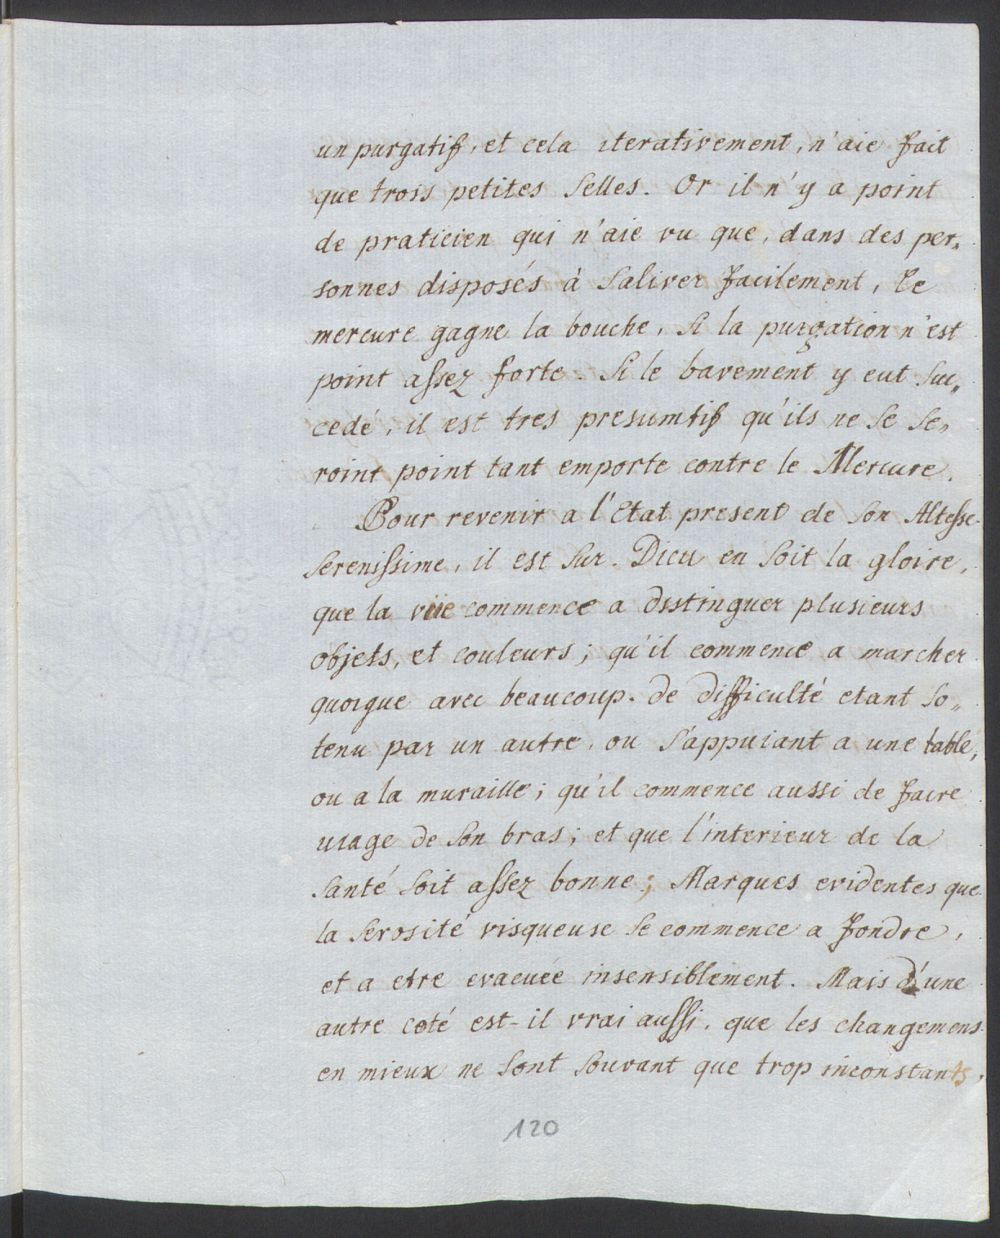 un purgatif, et cela iterativement, n'aie fait
que trois petites Selles. Or il n'y a point
de praticien qui n'aie vu que, dans des per„
sonnes disposés à Saliver facilement, le
mercure gagne la bouche, Si la purgation n'est
point assez forte. Si le bavement y eut Suc„
cedé, il est tres presumtif qu'ils ne Se Se„
roint point tant emporte contre le Mercure.
Pour revenir a l'Etat present de Son Altesse
Serenissime, il est Sur. Dieu en Soit la gloire,
que la vüe commence a distinguer plusieurs
objets, et couleurs; qu'il commence a marcher
quoique avec beaucoup de difficulté etant So„
tenu par un autre, ou S'appuiant a une table,
ou a la muraille; qu'il commence aussi de faire
usage de Son bras; et que l'interieur de la
Santé Soit assez bonne; Marques evidentes que
la Serosité visqueuse Se commence a fondre,
et a etre evacuée insensiblement. Mais d'une
autre coté est-il vrai aussi, que les changemens
en mieux ne Sont Souvant que trop inconstants,
120